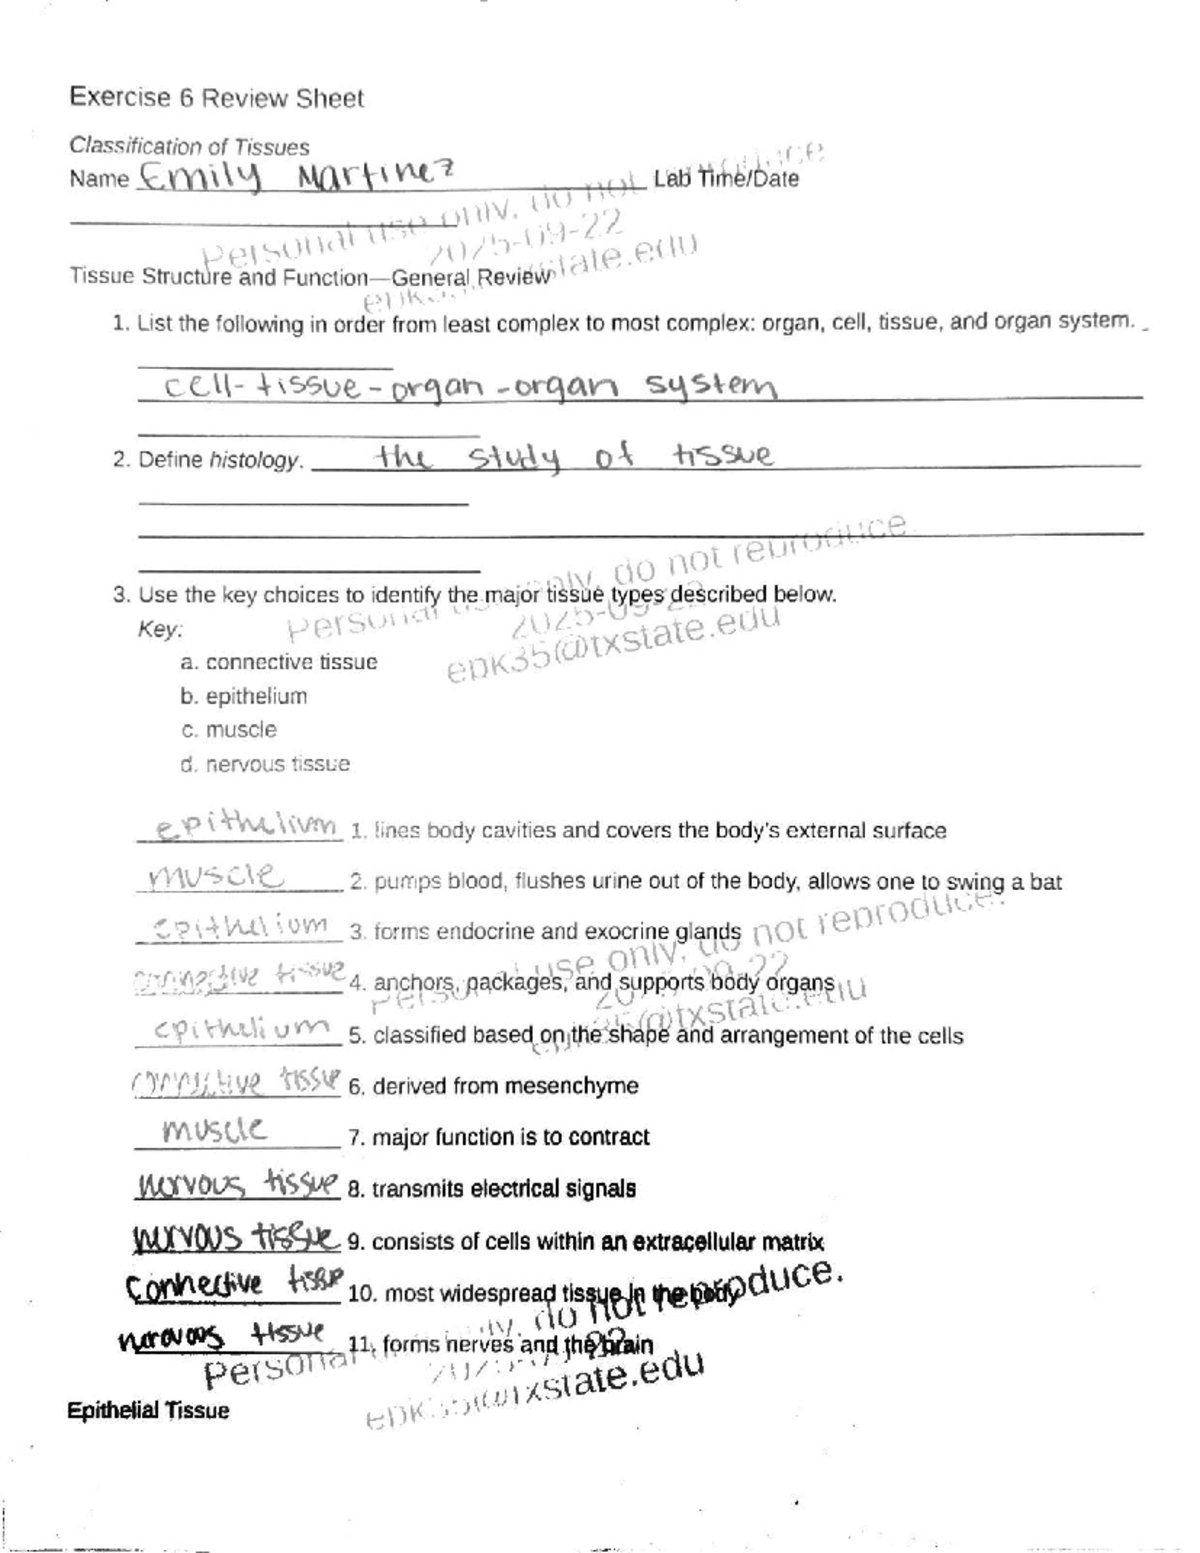 Exercise 6 Review Sheet
Classification of Tissues
Name Emily Martinez Lab Time/Date
Personal use only, do not reproduce
2025-09-22
Tissue Structure and Function—General Review
1. List the following in order from least complex to most complex: organ, cell, tissue, and organ system.
cell-tissue-organ-organ system
2. Define histology. the study of tissue
Personal only, do not reproduce
3. Use the key choices to identify the major tissue types described below.
2025-09-22
Key:
epk35@txstate.edu
a. connective tissue
b. epithelium
c. muscle
d. nervous tissue
epithelium 1. lines body cavities and covers the body's external surface
muscle 2. pumps blood, flushes urine out of the body, allows one to swing a bat
epithelium 3. forms endocrine and exocrine glands
Personal use only, do not reproduce.
connective tissue 4. anchors, packages, and supports body organs
epithelium 5. classified based on the shape and arrangement of the cells
connective tissue 6. derived from mesenchyme
muscle 7. major function is to contract
nervous tissue 8. transmits electrical signals
nervous tissue 9. consists of cells within an extracellular matrix
connective tissue 10. most widespread tissue in the body
nervous tissue 11. forms nerves and the brain
Personal do not reproduce.
epk35@txstate.edu
Epithelial Tissue